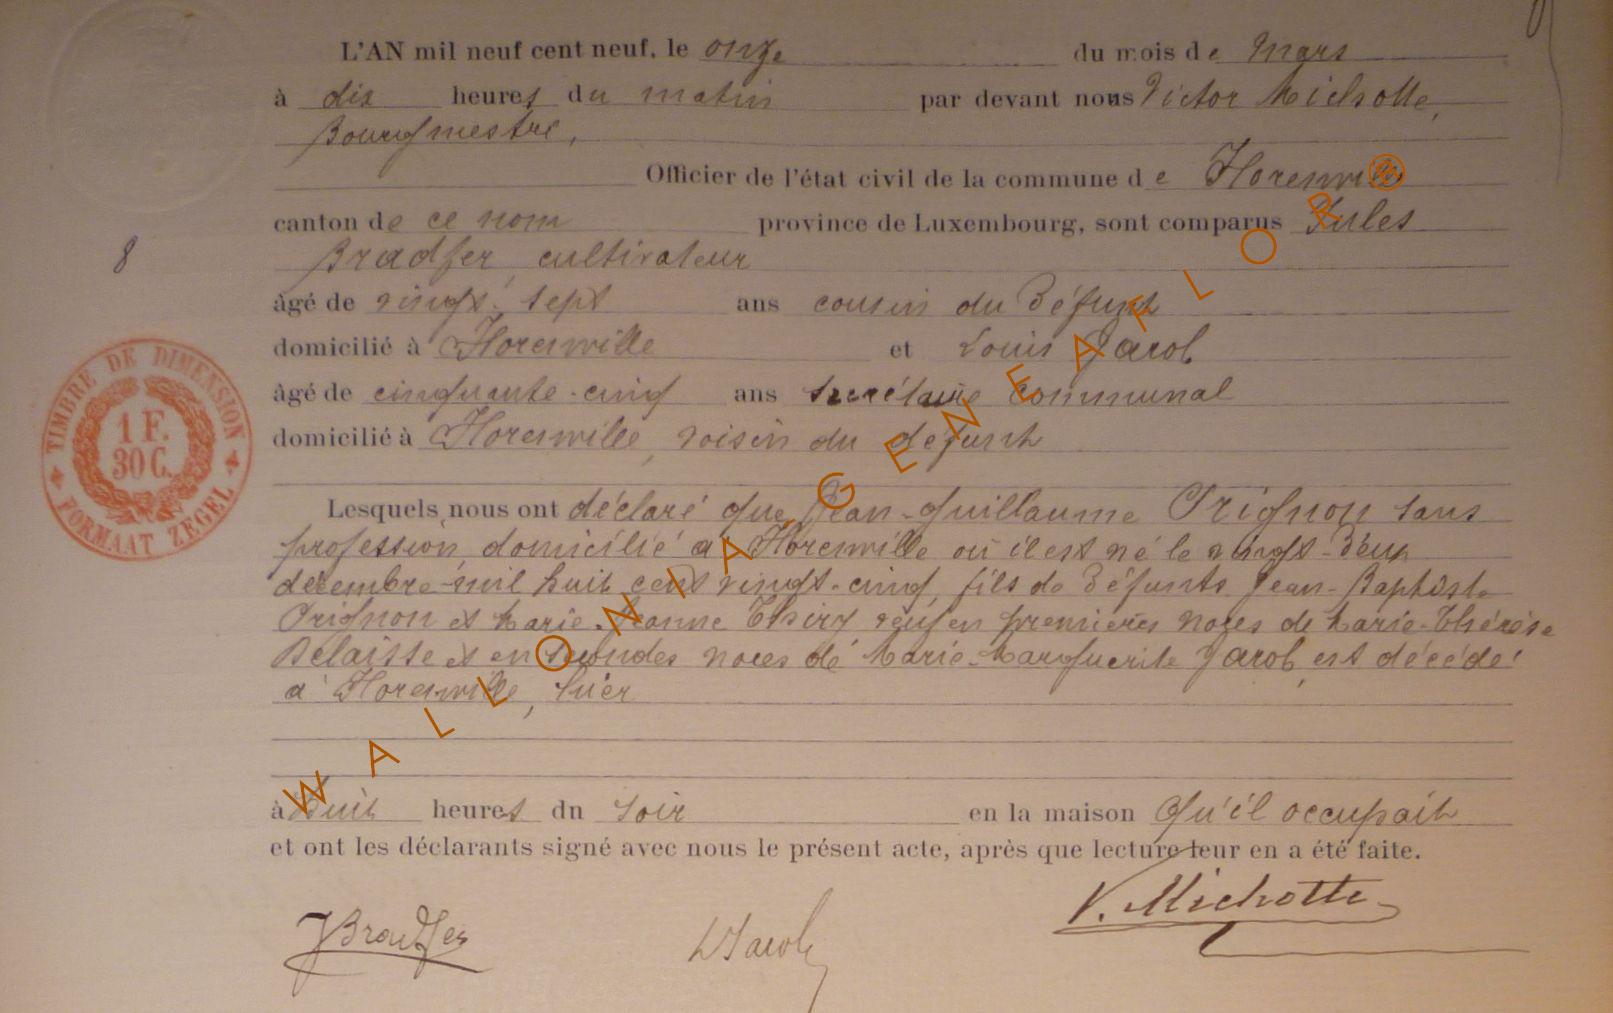 L'AN mil neuf cent neuf, le onze du mois de Mars
à dix heures du matin par devant nous Victor Michotte,
Bourgmestre,
Officier de l'état civil de la commune de Florenville
canton de ce nom province de Luxembourg, sont comparus Jules
Bradfer, cultivateur
8
âgé de vingt-sept ans cousin du défunt
domicilié à Florenville et Louis Jacob
âgé de cinquante-cinq ans secrétaire communal
domicilié à Florenville, voisin du défunt
TIMBRE DE DIMENSION
1 F.
30 C.
FORMAAT ZEGEL
Lesquels nous ont déclaré que Jean-Guillaume Orignon sans
profession, domicilié à Florenville où il est né le vingt-deux
décembre mil huit cent vingt-cinq, fils de défunts Jean-Baptiste
Orignon et Marie-Jeanne Thiry veuf en premières noces de Marie-Thérèse
Delaisse et en secondes noces de Marie-Marguerite Jacob, est décédé
à Florenville, hier
à huit heures du soir en la maison qu'il occupait
et ont les déclarants signé avec nous le présent acte, après que lecture leur en a été faite.
JBradfer LJacob V. Michotte
WALLONIA GENEAFLOR ®